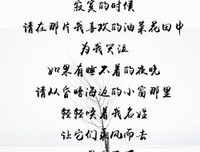 寂寞的时候
请在那片我喜欢的油菜花田中
为我哭泣
如果有睡不着的夜晚
请从昏暗海边的小窗那里
轻轻唤着我名姓
让它们乘风而去